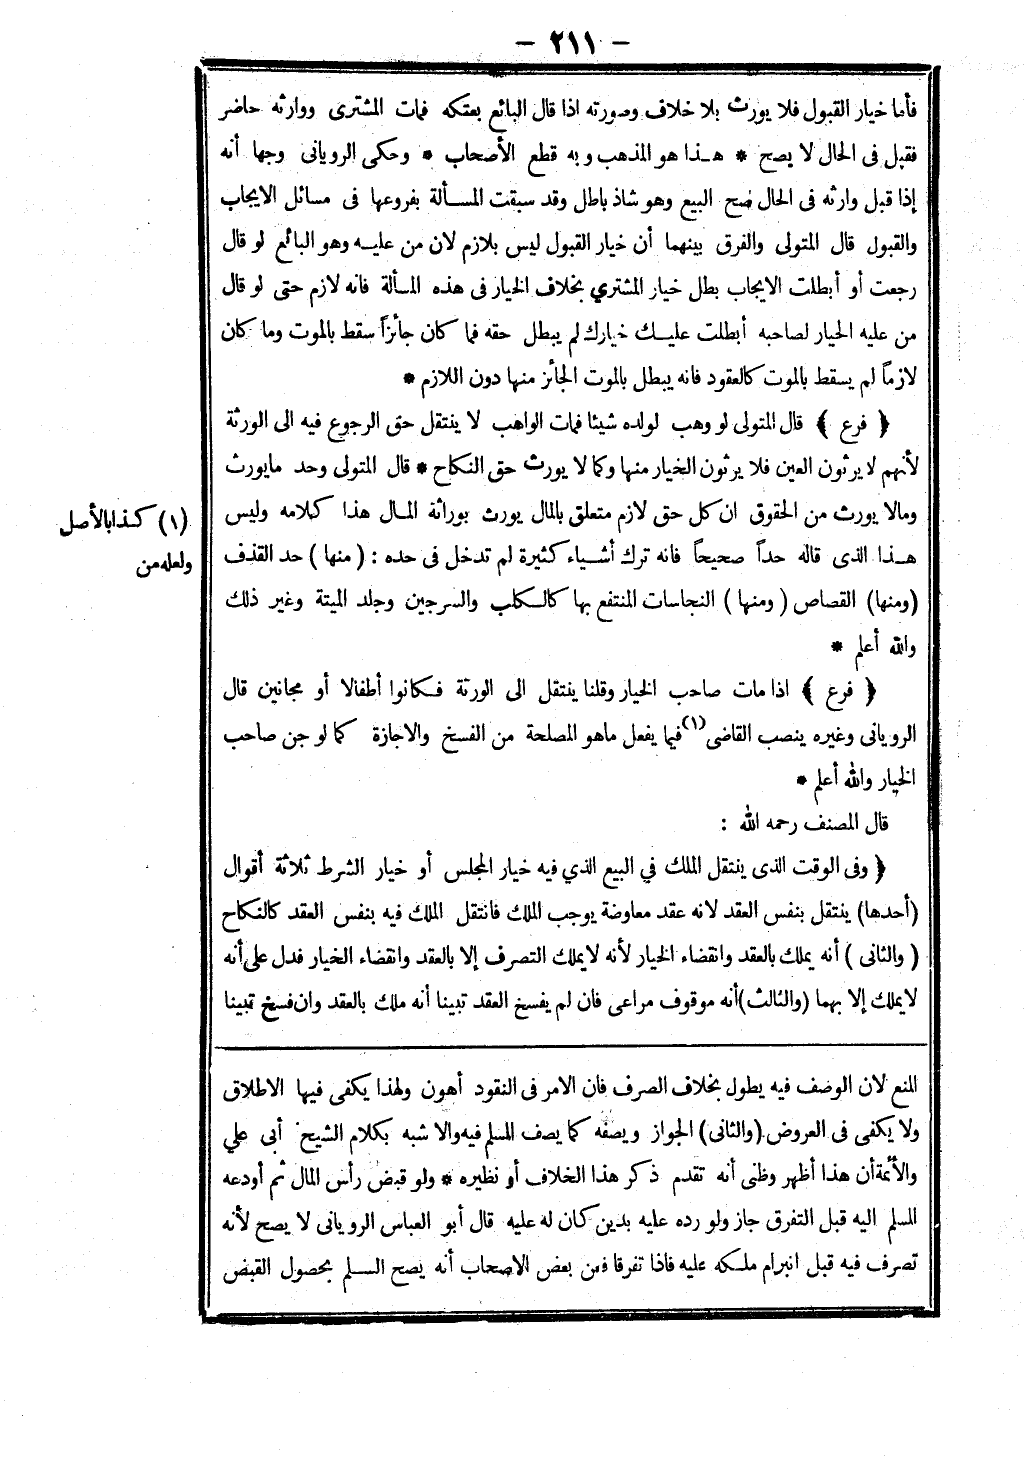 — ٢١١ —
فأما خيار القبول فلا يورث بلا خلاف وصورته اذا قال البائع بعتكه فمات المشترى ووارثه حاضر
فقبل فى الحال لا يصح * هـذا هو المذهب وبه قطع الأصحاب * وحكى الرويانى وجها أنه
إذا قبل وارثه فى الحال صح البيع وهو شاذ باطل وقد سبقت المسـألة بفروعها فى مسائل الايجاب
والقبول قال المتولى والفرق بينهما أن خيار القبول ليس بلازم لان من عليـه وهو البائع لو قال
رجعت أو أبطلت الايجاب بطل خيار المشتري بخلاف الخيار فى هذه المسألة فانه لازم حتى لو قال
من عليه الخيار لصاحبه أبطلت عليـك خيارك لم يبطل حقه فما كان جائزاً سقط بالموت وما كان
لازماً لم يسقط بالموت كالعقود فانه يبطل بالموت الجائز منها دون اللازم *
﴿ فرع ﴾ قال المتولى لو وهب لولده شيئا فمات الواهب لا ينتقل حق الرجوع فيه الى الورثة
لأنهم لا يرثون العين فلا يرثون الخيار منها وكما لا يورث حق النكاح * قال المتولى وحد مايورث
ومالا يورث من الحقوق ان كل حق لازم متعلق بالمال يورث بوراثة المـال هذا كلامه وليس
هـذا الذى قاله حداً صحيحاً فانه ترك أشـياء كثيرة لم تدخل فى حده : ( منها ) حد القذف
(ومنها) القصاص ( ومنها ) النجاسات المنتفع بها كالـكلب والسرجين وجلد الميتة وغير ذلك
والله أعلم *
﴿ فرع ﴾ اذا مات صاحب الخيار وقلنا ينتقل الى الورثة فـكانوا أطفالا أو مجانين قال
الرويانى وغيره ينصب القاضى(١) فيما يفعل ماهو المصلحة من الفسخ والاجازة كما لو جن صاحب
الخيار والله أعلم *
قال المصنف رحمه الله :
﴿ وفى الوقت الذى ينتقل الملك في البيع الذي فيه خيار المجلس أو خيار الشرط ثلاثة أقوال
(أحدها) ينتقل بنفس العقد لانه عقد معاوضة يوجب الملك فانتقل الملك فيه بنفس العقد كالنكاح
( والثانى ) أنه يملك بالعقد وانقضاء الخيار لأنه لايملك التصرف إلا بالعقد وانقضاء الخيار فدل على أنه
لايملك إلا بهما (والثالث)أنه موقوف مراعى فان لم يفسخ العقد تبينا أنه ملك بالعقد وان فسخ تبينا
(١) كـذا بالأصل
ولعله من
المنع لان الوصف فيه يطول بخلاف الصرف فان الامر فى النقود أهون ولهذا يكفى فيها الاطلاق
ولا يكفى فى العروض (والثانى) الجواز ويصفه كما يصف المسلم فيه والاشبه بكلام الشيخ أبى علي
والأئمة أن هذا أظهر وظنى أنه تقدم ذكر هذا الخلاف أو نظيره * ولو قبض رأس المال ثم أودعه
المسلم اليه قبل التفرق جاز ولو رده عليه بدين كان له عليه قال أبو العباس الرويانى لا يصح لأنه
تصرف فيه قبل انبرام ملـكه عليه فاذا تفرقا فعن بعض الاصحاب أنه يصح السـلم بحصول القبض